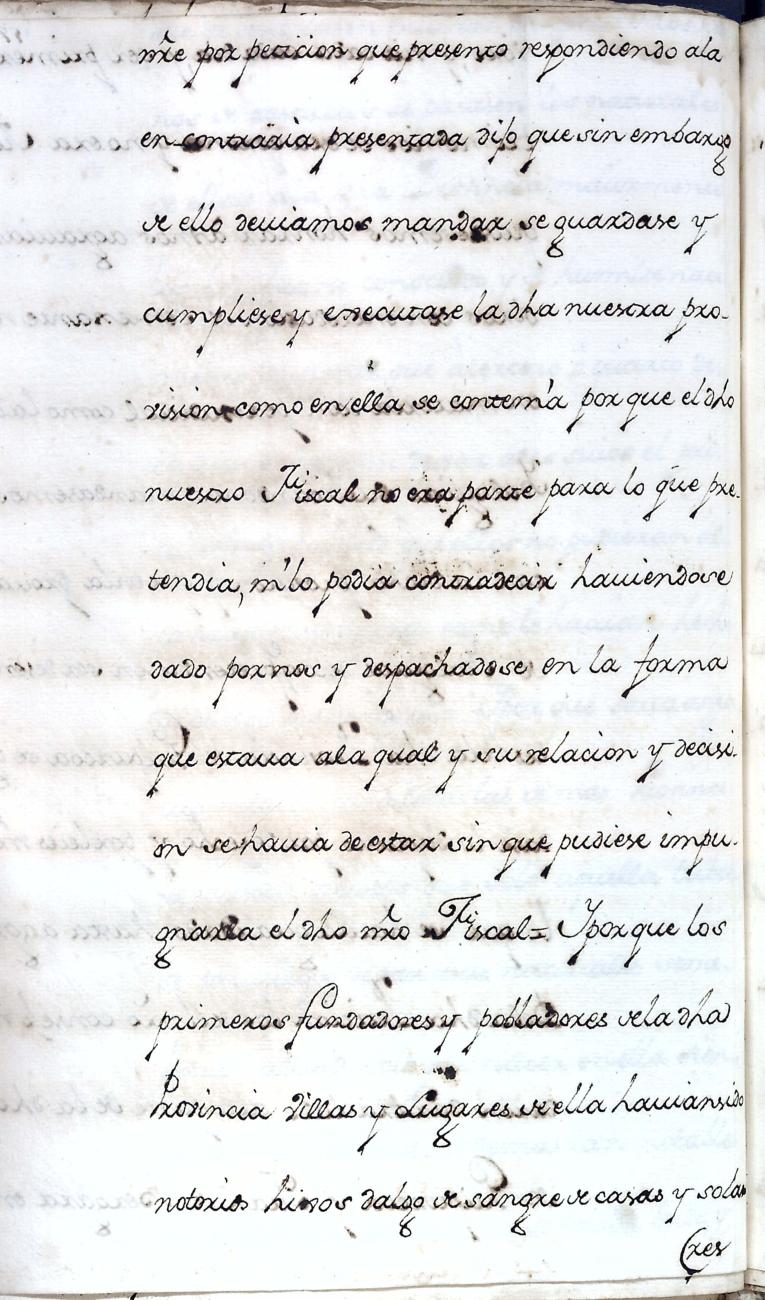 ñre por peticion que presento respondiendo ala
en contraria presentada dijo que sin embargo
de ello deviamos mandar se guardase y
cumpliese y executase la dha nuestra pro-
vision como en ella se contenia por que el dho
nuestro Fiscal no era parte para lo que pre-
tendia, ni lo podia contradecir haviendose
dado por nos y despachadose en la forma
que estava ala qual y su relacion y decisi-
on se havia de estar sin que pudiese impu-
gnarla el dho ñro Fiscal = Y por que los
primeros fundadores y pobladores dela dha
Provincia Villas y Lugares de ella havian sido
notorios hixos dalgo de sangre de casas y sola
(res